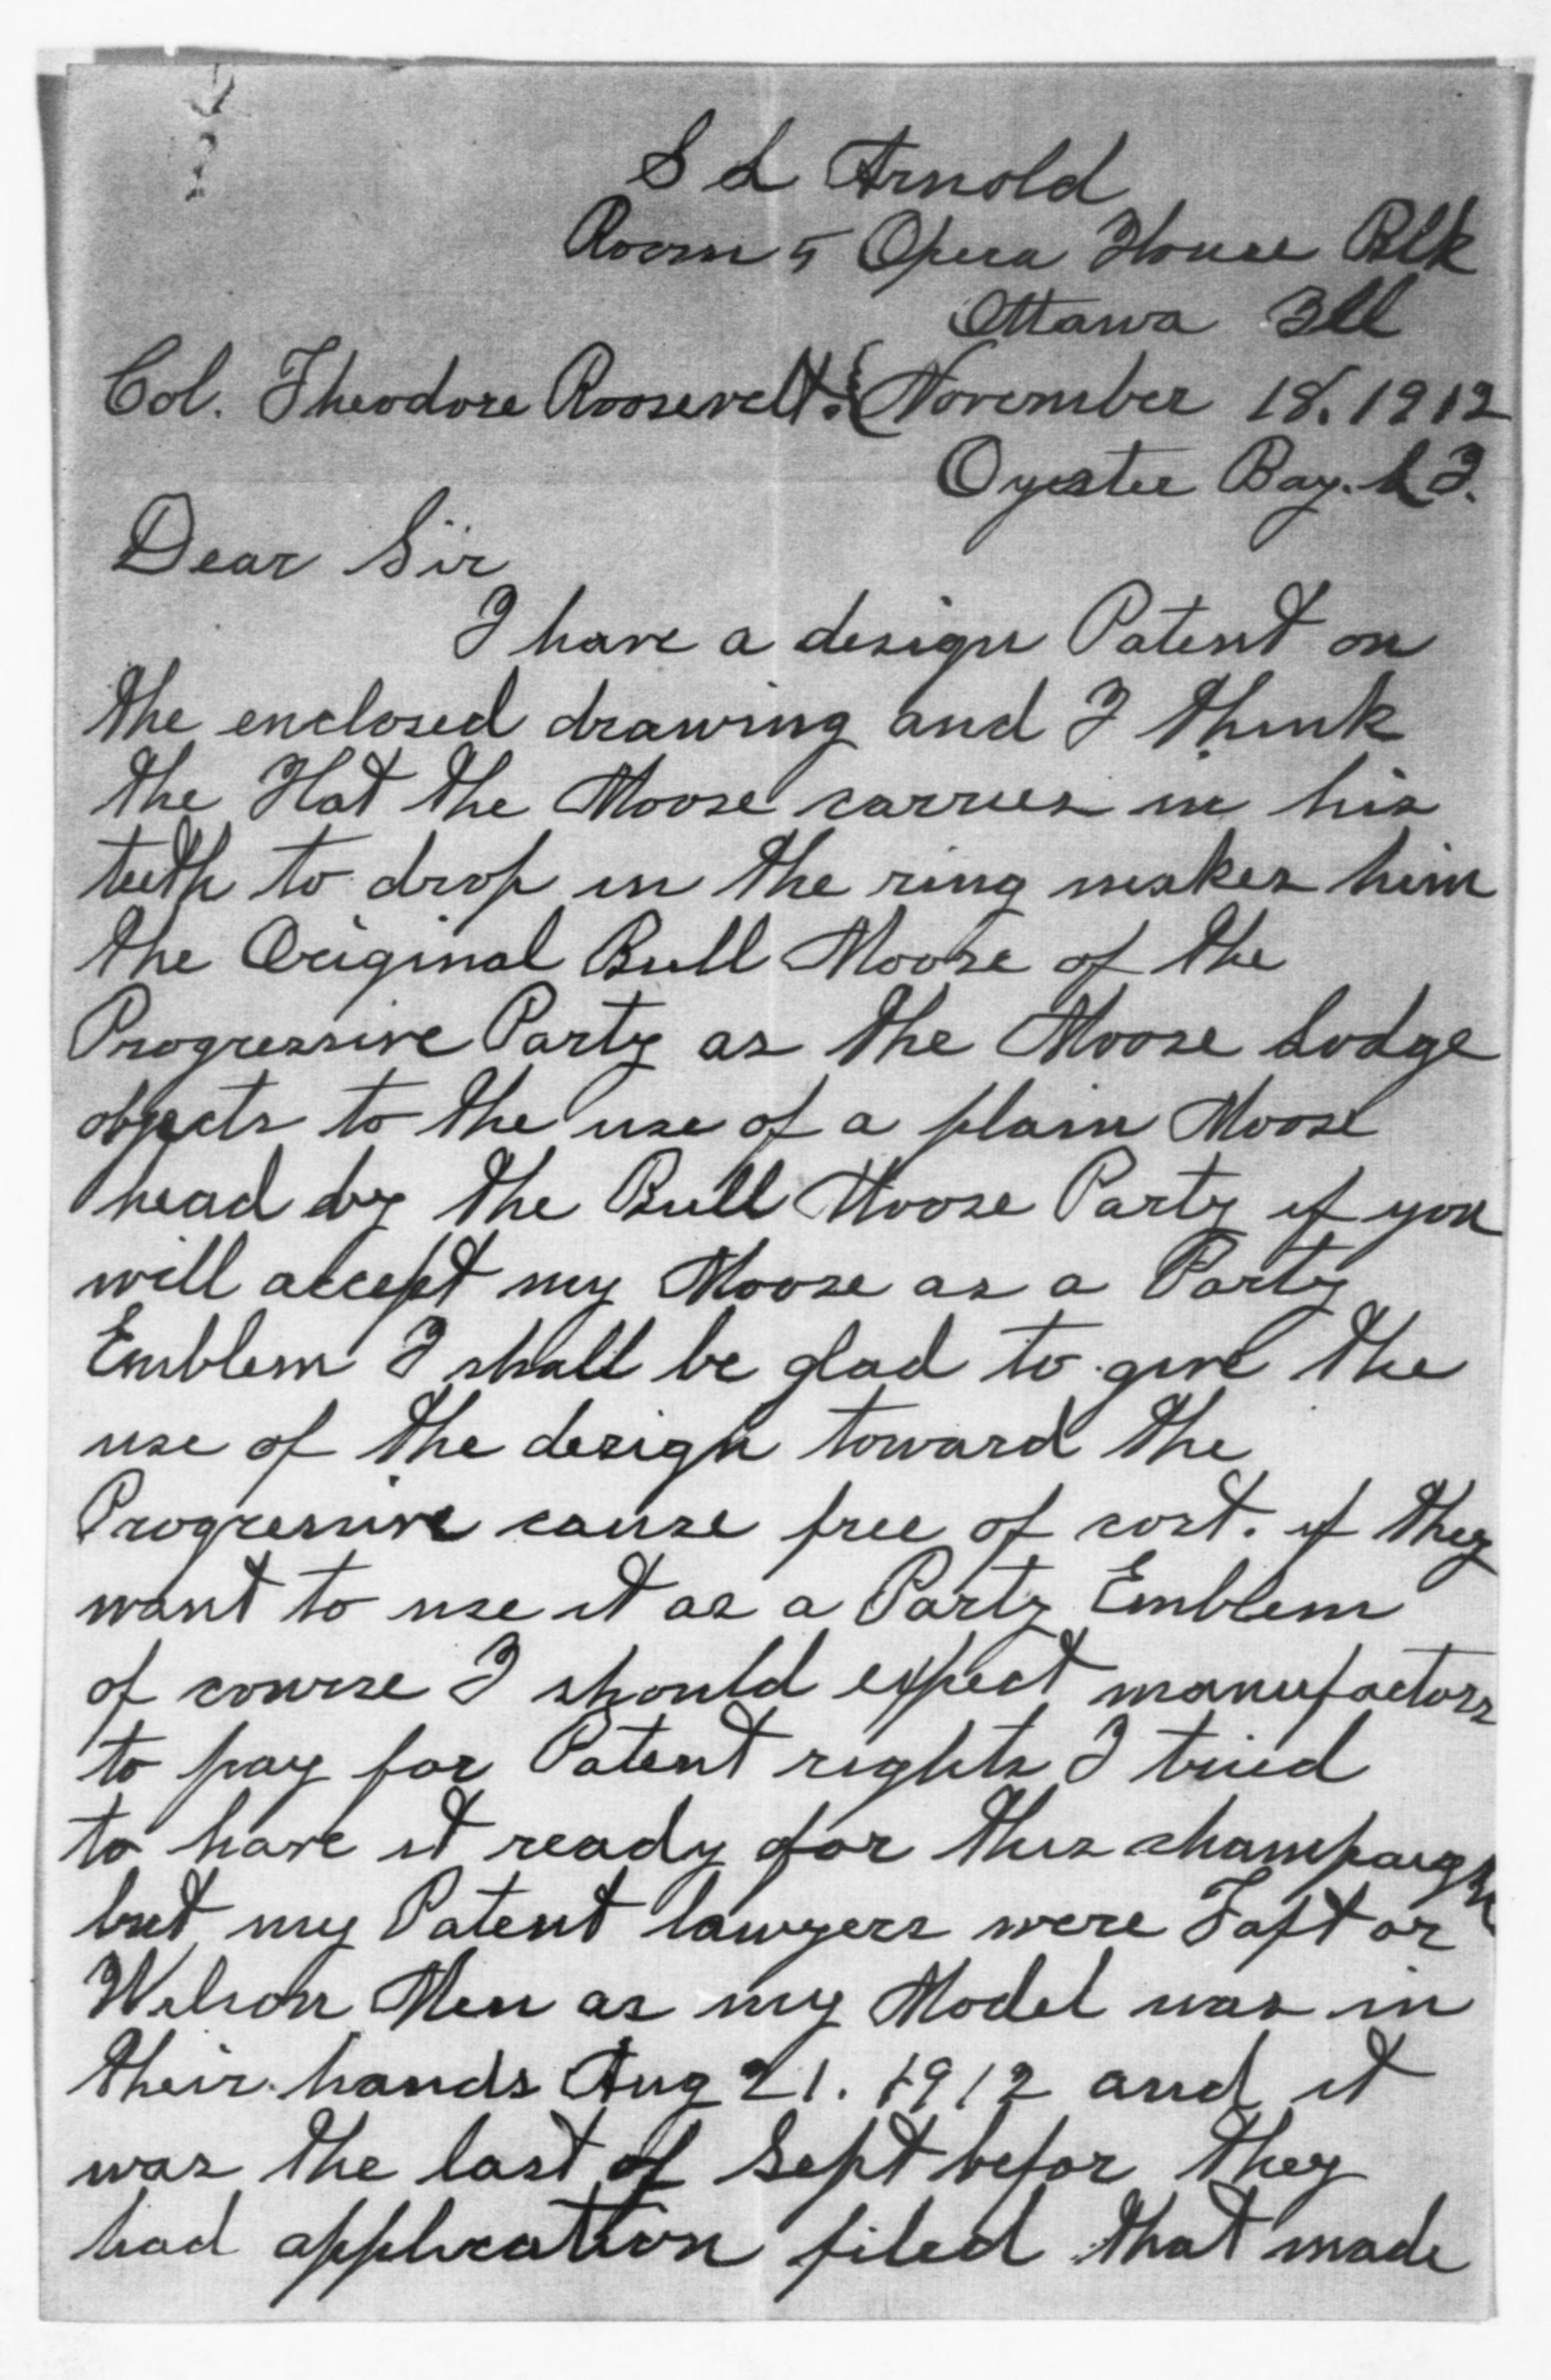 S L Arnold
Room 5 Opera House Blk
Ottawa Ill
Col. Theodore Roosevelt. { November 18. 1912
Oyster Bay. L I.
Dear Sir
I have a design Patent on
the enclosed drawing and I think
the Hat the Moose carries in his
teeth to drop in the ring makes him
the Original Bull Moose of the
Progressive Party as the Moose Lodge
objects to the use of a plain Moose
head by the Bull Moose Party if you
will accept my Moose as a Party
Emblem I shall be glad to give the
use of the design toward the
Progressive cause free of cost. if they
want to use it as a Party Emblem
of course I should expect manufactors
to pay for Patent rights I tried
to have it ready for this champaign
but my Patent lawyers were Taft or
Wilson Men as my Model was in
their hands Aug 21. 1912 and it
was the last of Sept befor they
had application filed that made